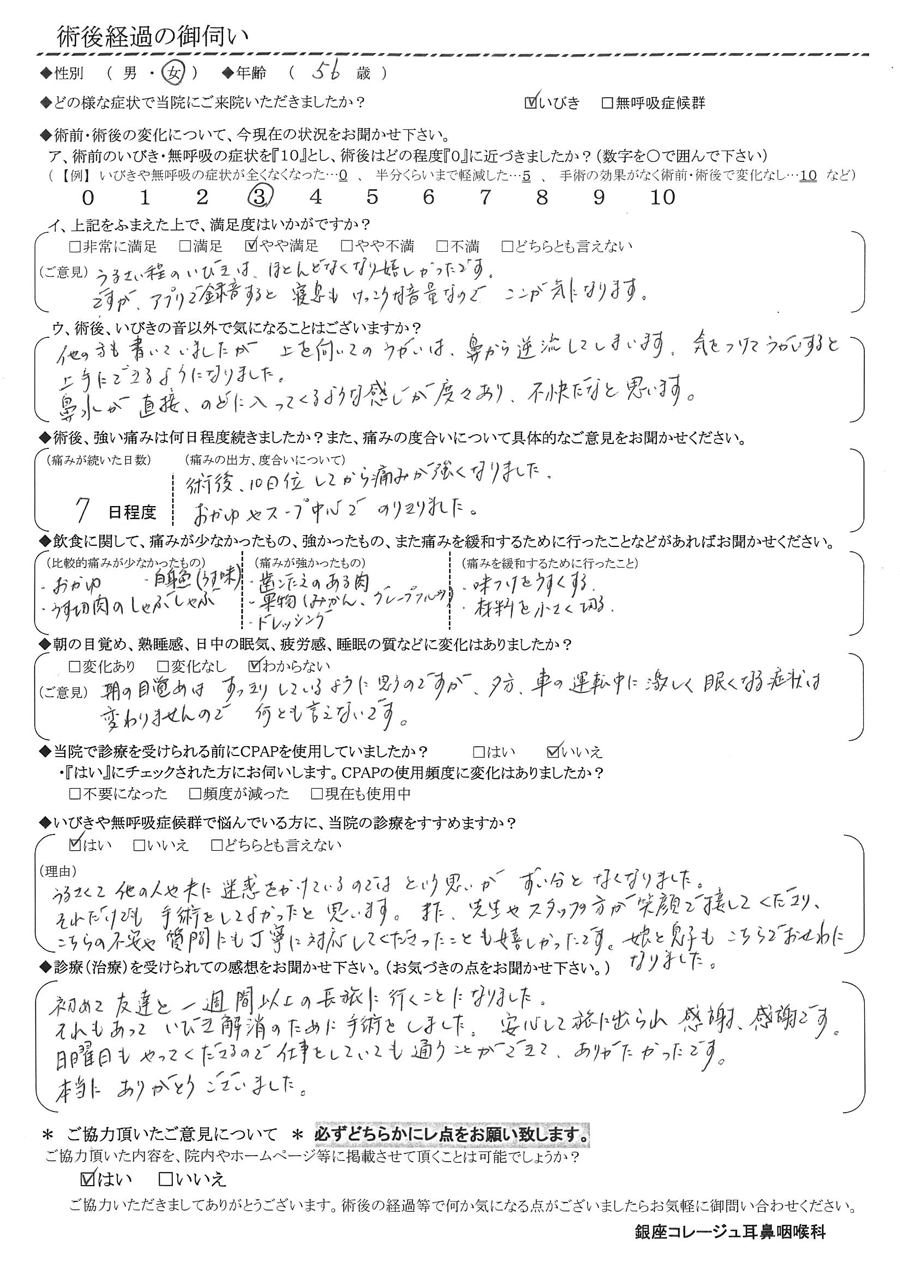 術後経過の御伺い
◆性別 ( 男 ・ 女 ) ◆年齢 ( 56 歳 )
◆どの様な症状で当院にご来院いただきましたか? ☑いびき □無呼吸症候群
◆術前・術後の変化について、今現在の状況をお聞かせ下さい。
ア、術前のいびき・無呼吸の症状を『10』とし、術後はどの程度『0』に近づきましたか?(数字を〇で囲んで下さい)
(【例】いびきや無呼吸の症状が全くなくなった…0 、 半分くらいまで軽減した…5 、 手術の効果がなく術前・術後で変化なし…10 など)
0 1 2 3 4 5 6 7 8 9 10
イ、上記をふまえた上で、満足度はいかがですか?
□非常に満足 □満足 ☑やや満足 □やや不満 □不満 □どちらとも言えない
(ご意見) うるさい程のいびきは、ほとんどなくなり嬉しかったです。
ですが、アプリで録音すると 寝息も けっこうな音量なので ここが気になります。
ウ、術後、いびきの音以外で気になることはございますか?
他の方も書いていましたが 上を向いてのうがいは、鼻から逆流してしまいます。気をつけてうがいすると
上手にできるようになりました。
鼻水が 直接、のどに入ってくるような感じが度々あり、不快だなと思います。
◆術後、強い痛みは何日程度続きましたか?また、痛みの度合いについて具体的なご意見をお聞かせください。
(痛みが続いた日数) (痛みの出方、度合いについて)
術後、10日位してから痛みが強くなりました。
7 日程度 おかゆやスープ中心で のりきりました。
◆飲食に関して、痛みが少なかったもの、強かったもの、また痛みを緩和するために行ったことなどがあればお聞かせください。
(比較的痛みが少なかったもの) (痛みが強かったもの) (痛みを緩和するために行ったこと)
・おかゆ ・白身魚(うす味) ・歯ごたえのある肉 ・味つけをうすくする。
・うす切肉のしゃぶしゃぶ ・果物(みかん、グレープフルーツ) ・材料を小さく切る。
・ドレッシング
◆朝の目覚め、熟睡感、日中の眠気、疲労感、睡眠の質などに変化はありましたか?
□変化あり □変化なし ☑わからない
(ご意見) 朝の目覚めは すっきりしているように思うのですが、夕方、車の運転中に激しく眠くなる症状は
変わりませんので 何とも言えないです。
◆当院で診療を受けられる前にCPAPを使用していましたか? □はい ☑いいえ
・『はい』にチェックされた方にお伺いします。CPAPの使用頻度に変化はありましたか?
□不要になった □頻度が減った □現在も使用中
◆いびきや無呼吸症候群で悩んでいる方に、当院の診療をすすめますか?
☑はい □いいえ □どちらとも言えない
(理由)
うるさくて 他の人や夫に迷惑をかけているのでは という思いが ずい分と なくなりました。
それだけでも 手術をしてよかったと思います。また、先生やスタッフの方が笑顔で接してくださり、
こちらの不安や質問にも丁寧に対応してくださったことも嬉しかったです。娘と息子も こちらでおせわに
なりました。
◆診療(治療)を受けられての感想をお聞かせ下さい。(お気づきの点をお聞かせ下さい。)
初めて 友達と 一週間以上の長旅に行くことになりました。
それもあって いびき解消のために手術をしました。安心して旅に出られ 感謝、感謝です。
日曜日も やってくださるので 仕事をしていても 通うことができて、ありがたかったです。
本当に ありがとうございました。
* ご協力頂いたご意見について * 必ずどちらかにレ点をお願い致します。
ご協力頂いた内容を、院内やホームページ等に掲載させて頂くことは可能でしょうか?
☑はい □いいえ
ご協力いただきましてありがとうございます。術後の経過等で何か気になる点がございましたらお気軽に御問い合わせください。
銀座コレージュ耳鼻咽喉科